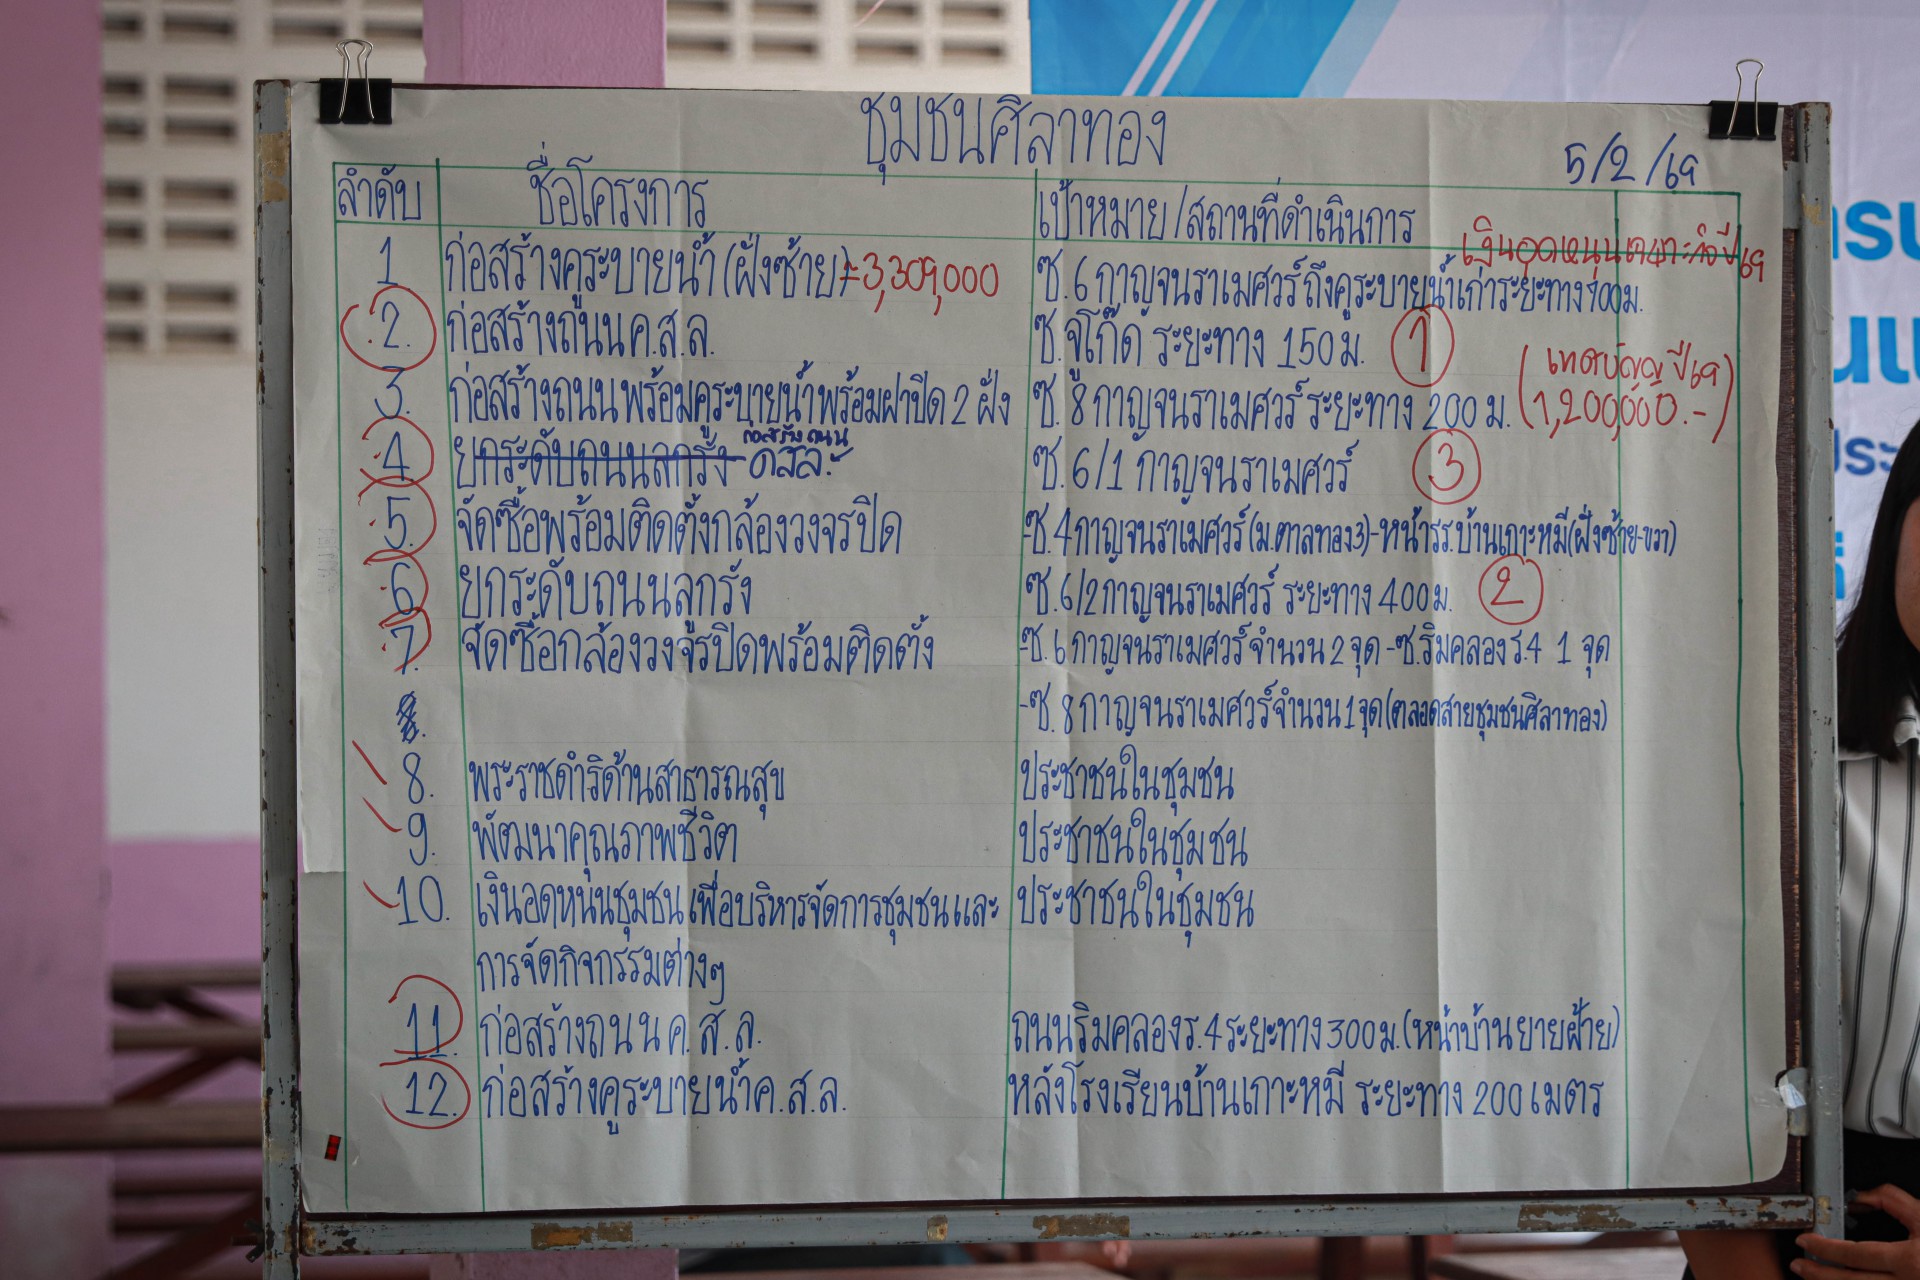 ชุมชนศิลาทอง
5/2/69
ลำดับ ชื่อโครงการ เป้าหมาย/สถานที่ดำเนินการ
เงินอุดหนุนเฉพาะกิจปี 69
1 ก่อสร้างคูระบายน้ำ (ฝั่งซ้าย) = 3,309,000 ซ.6 กาญจนราเมศวร์ ถึงคูระบายน้ำเก่าระยะทาง 700 ม.
2. ก่อสร้างถนน ค.ส.ล. ซ.จูโก๊ด ระยะทาง 150 ม. 1
3. ก่อสร้างถนนพร้อมคูระบายน้ำพร้อมฝาปิด 2 ฝั่ง ซ.8 กาญจนราเมศวร์ ระยะทาง 200 ม. (เทศบัญญปี 69) (1,200,000.-)
4 ยกระดับถนนลูกรัง ก่อสร้างถนน คสล. ซ.6/1 กาญจนราเมศวร์ 3
5. จัดซื้อพร้อมติดตั้งกล้องวงจรปิด -ซ.4 กาญจนราเมศวร์ (ม.ตาลทอง3)-หน้ารร.บ้านเกาะหมี (ฝั่งซ้าย-ขวา)
6 ยกระดับถนนลูกรัง ซ.6/2 กาญจนราเมศวร์ ระยะทาง 400 ม. 2
7. จัดซื้อกล้องวงจรปิดพร้อมติดตั้ง -ซ.6 กาญจนราเมศวร์ จำนวน 2 จุด -ซ.ริมคลอง ร.4 1 จุด
8. -ซ.8 กาญจนราเมศวร์ จำนวน 1 จุด (ตลอดสายชุมชนศิลาทอง)
8. พระราชดำริด้านสาธารณสุข ประชาชนในชุมชน
9. พัฒนาคุณภาพชีวิต ประชาชนในชุมชน
10. เงินอุดหนุนชุมชน เพื่อบริหารจัดการชุมชนและ ประชาชนในชุมชน
การจัดกิจกรรมต่างๆ
11. ก่อสร้างถนน ค.ส.ล. ถนนริมคลอง ร.4 ระยะทาง 300 ม. (หน้าบ้านยายฝ้าย)
12. ก่อสร้างคูระบายน้ำ ค.ส.ล. หลังโรงเรียนบ้านเกาะหมี ระยะทาง 200 เมตร